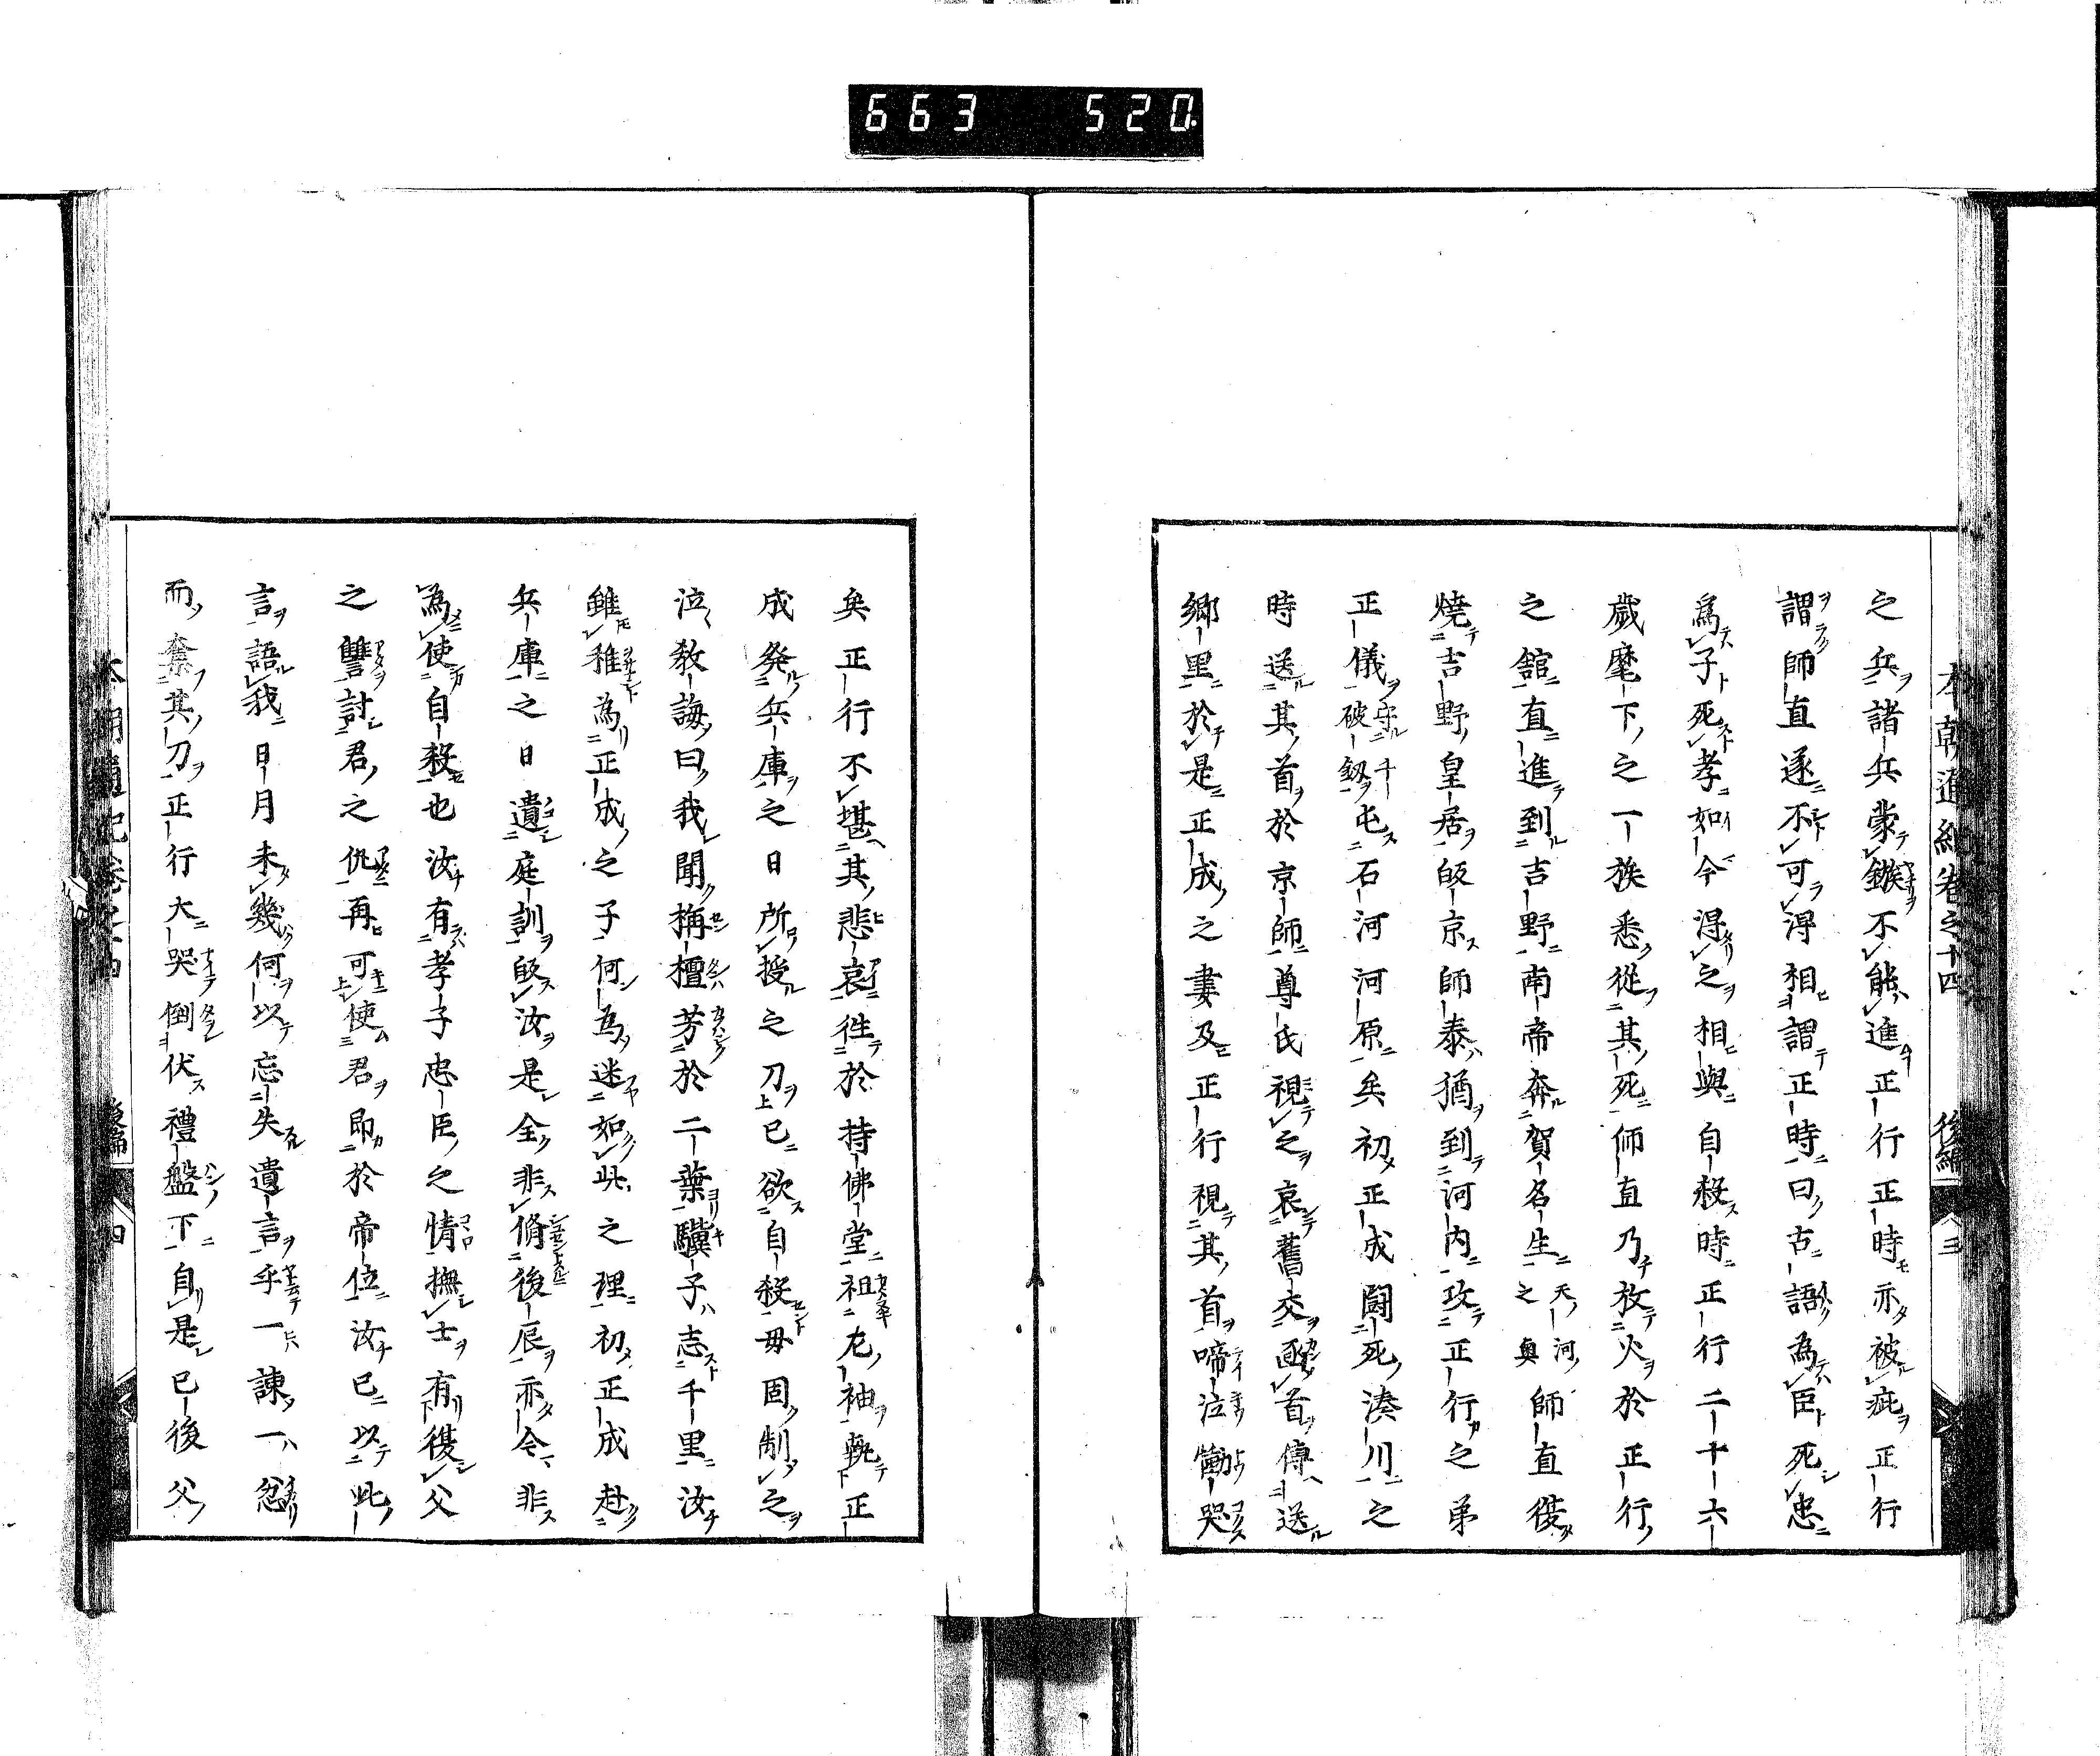 663 520
本朝通紀卷之十四 後編 三
之兵諸兵蒙鏃不能進正行正時亦被疵正行
謂師直遂不可得相謂正時曰古語為臣死忠
為子死孝如今得之相與自殺時正行二十六
歲麾下之一族悉從其死師直乃放火於正行
之舘直進到吉野南帝奔賀名生天河之奥師直後
燒吉野皇居皈京師泰猶到河内攻正行之弟
正儀破千釼屯石河河原矣初正成鬪死湊川之
時送其首於京師尊氏視之哀舊交函首傳送
鄉里於是正成之妻及正行視其首啼泣慟哭
矣正行不堪其悲哀徃於持佛堂祖左袖執正
成発兵庫之日所授之刀已欲自殺母固制之
泣教誨曰我聞栴檀芳於二葉驥子志千里汝
雖稚為正成之子何為迷如此之理初正成赴
兵庫之日遺庭訓皈汝是全非脩後辰亦令非
為使自殺也汝有孝子忠臣之情撫士有復父
之讐討君之仇再可使君即於帝位汝已以此
言語我日月未幾何以忘失遺言乎一諫一忿
而奪其刀正行大哭倒伏禮盤下自是已後父
後編 四